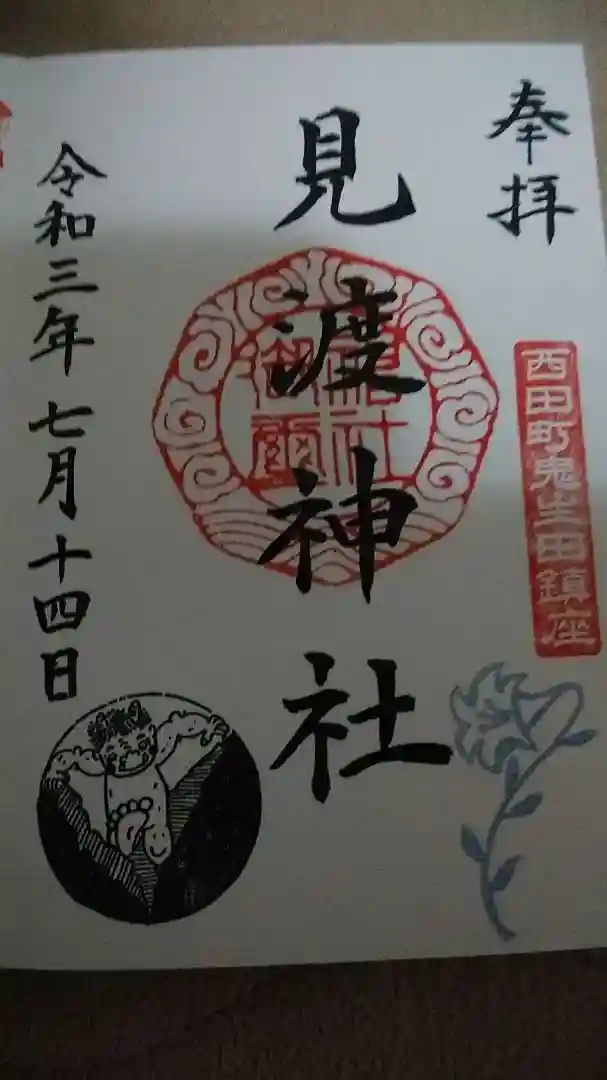 奉拝
西田町鬼生田鎮座
見渡神社
令和三年七月十四日